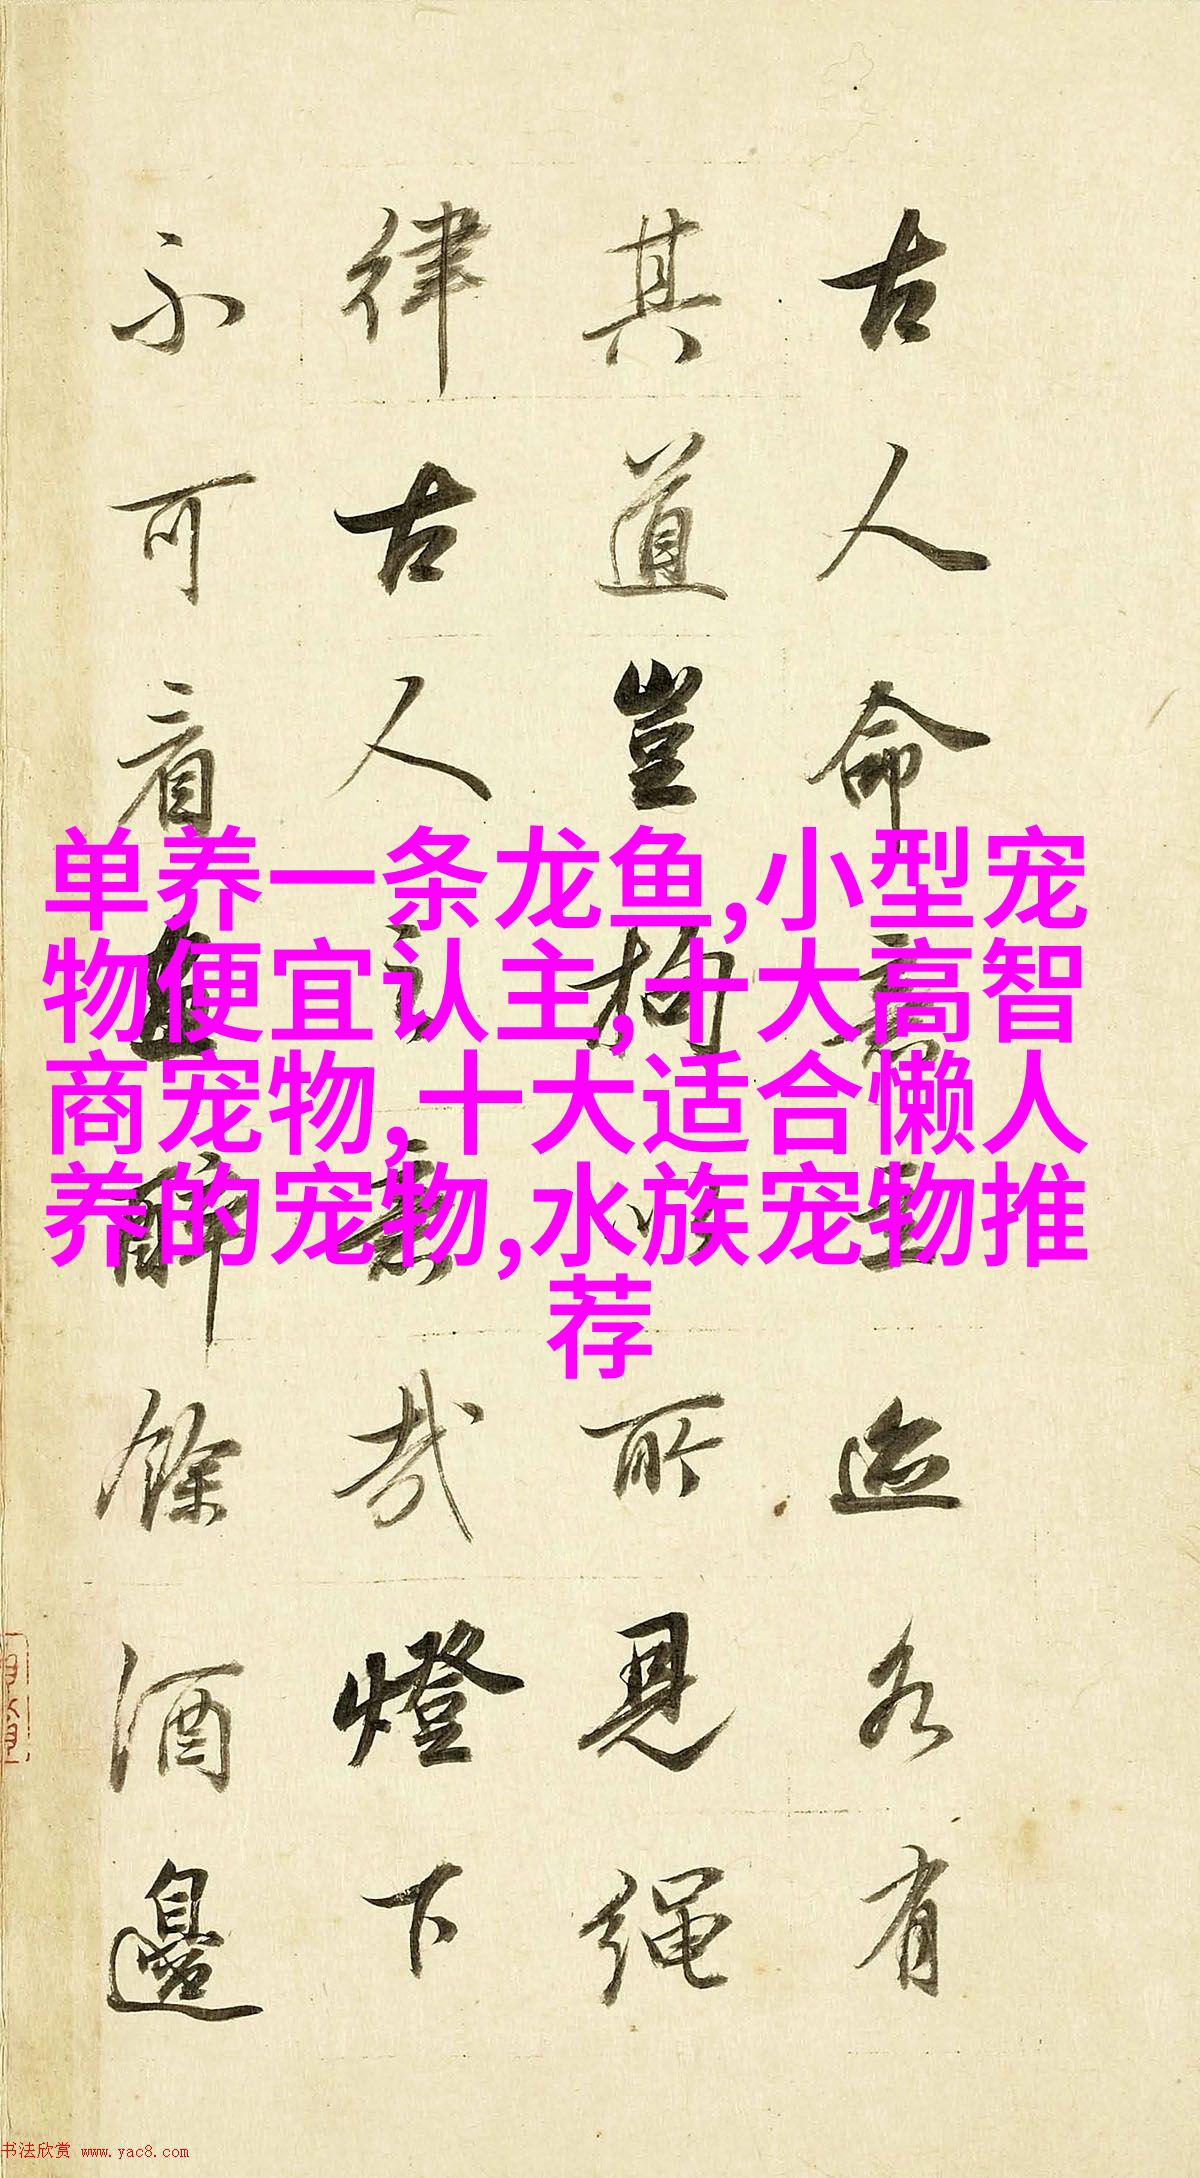 古人命意迹各有
其道豈拘以所見繩
律古人意哉燈下
不可看且醉餘酒邊
单养一条龙鱼,小型宠
物便宜认主,十大高智
商宠物,十大适合懒人
养的宠物,水族宠物推
荐
书法欣赏 www.yac8.com